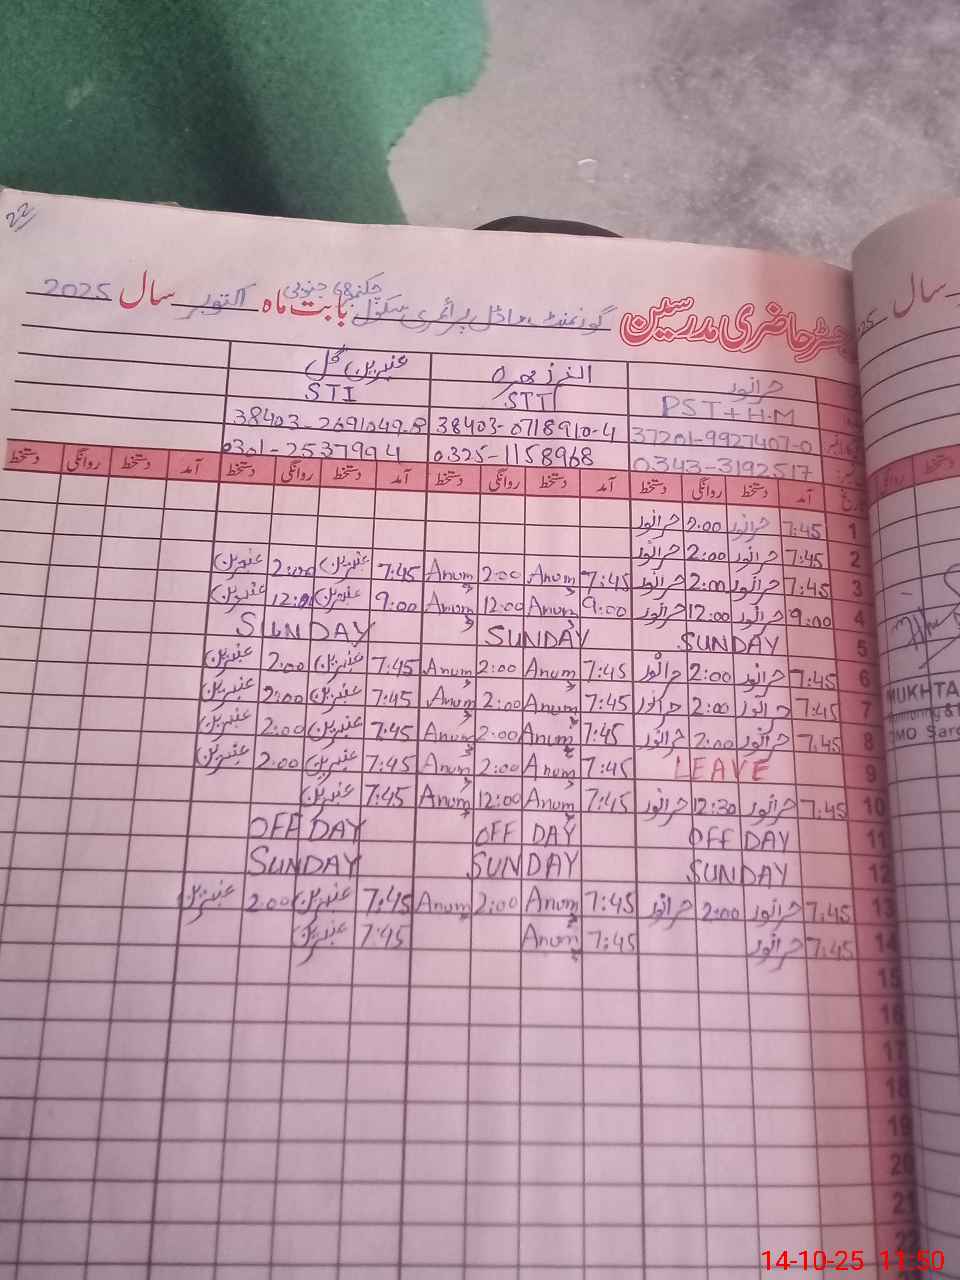 22
رجسٹر حاضری مدرسین گورنمنٹ ماڈل پرائمری سکول چک نمبر 68 جنوبی بابت ماہ اکتوبر سال 2025
حرانور عنبرین گل
PST+H.M STI STI
37201-9927407-0 38403-0718910-4 38403-2691049-8
0343-3192517 0325-1158968 0301-2537994
آمد دستخط روانگی دستخط آمد دستخط روانگی دستخط آمد دستخط روانگی دستخط آمد دستخط روانگی دستخط
1 7:45 حرانور 2:00 حرانور
2 7:45 حرانور 2:00 حرانور
3 7:45 حرانور 2:00 حرانور 7:45 Anum 2:00 Anum 7:45 عنبرین 2:00 عنبرین
4 9:00 حرانور 12:00 حرانور 9:00 Anum 12:00 Anum 9:00 عنبرین 12:00 عنبرین
5 SUNDAY SUNDAY SUNDAY
6 7:45 حرانور 2:00 حرانور 7:45 Anum 2:00 Anum 7:45 عنبرین 2:00 عنبرین
7 7:45 حرانور 2:00 حرانور 7:45 Anum 2:00 Anum 7:45 عنبرین 2:00 عنبرین
8 7:45 حرانور 2:00 حرانور 7:45 Anum 2:00 Anum 7:45 عنبرین 2:00 عنبرین
9 LEAVE 7:45 Anum 2:00 Anum 7:45 عنبرین 2:00 عنبرین
10 7:45 حرانور 12:30 حرانور 7:45 Anum 12:00 Anum 7:45 عنبرین
11 OFF DAY OFF DAY OFF DAY
12 SUNDAY SUNDAY SUNDAY
13 7:45 حرانور 2:00 حرانور 7:45 Anum 2:00 Anum 7:45 عنبرین 2:00 عنبرین
14 7:45 حرانور 7:45 Anum 7:45 عنبرین
15
16
17
18
19
20
21
22
سال
MUKHTA
DMO Sarg
14-10-25 11:50